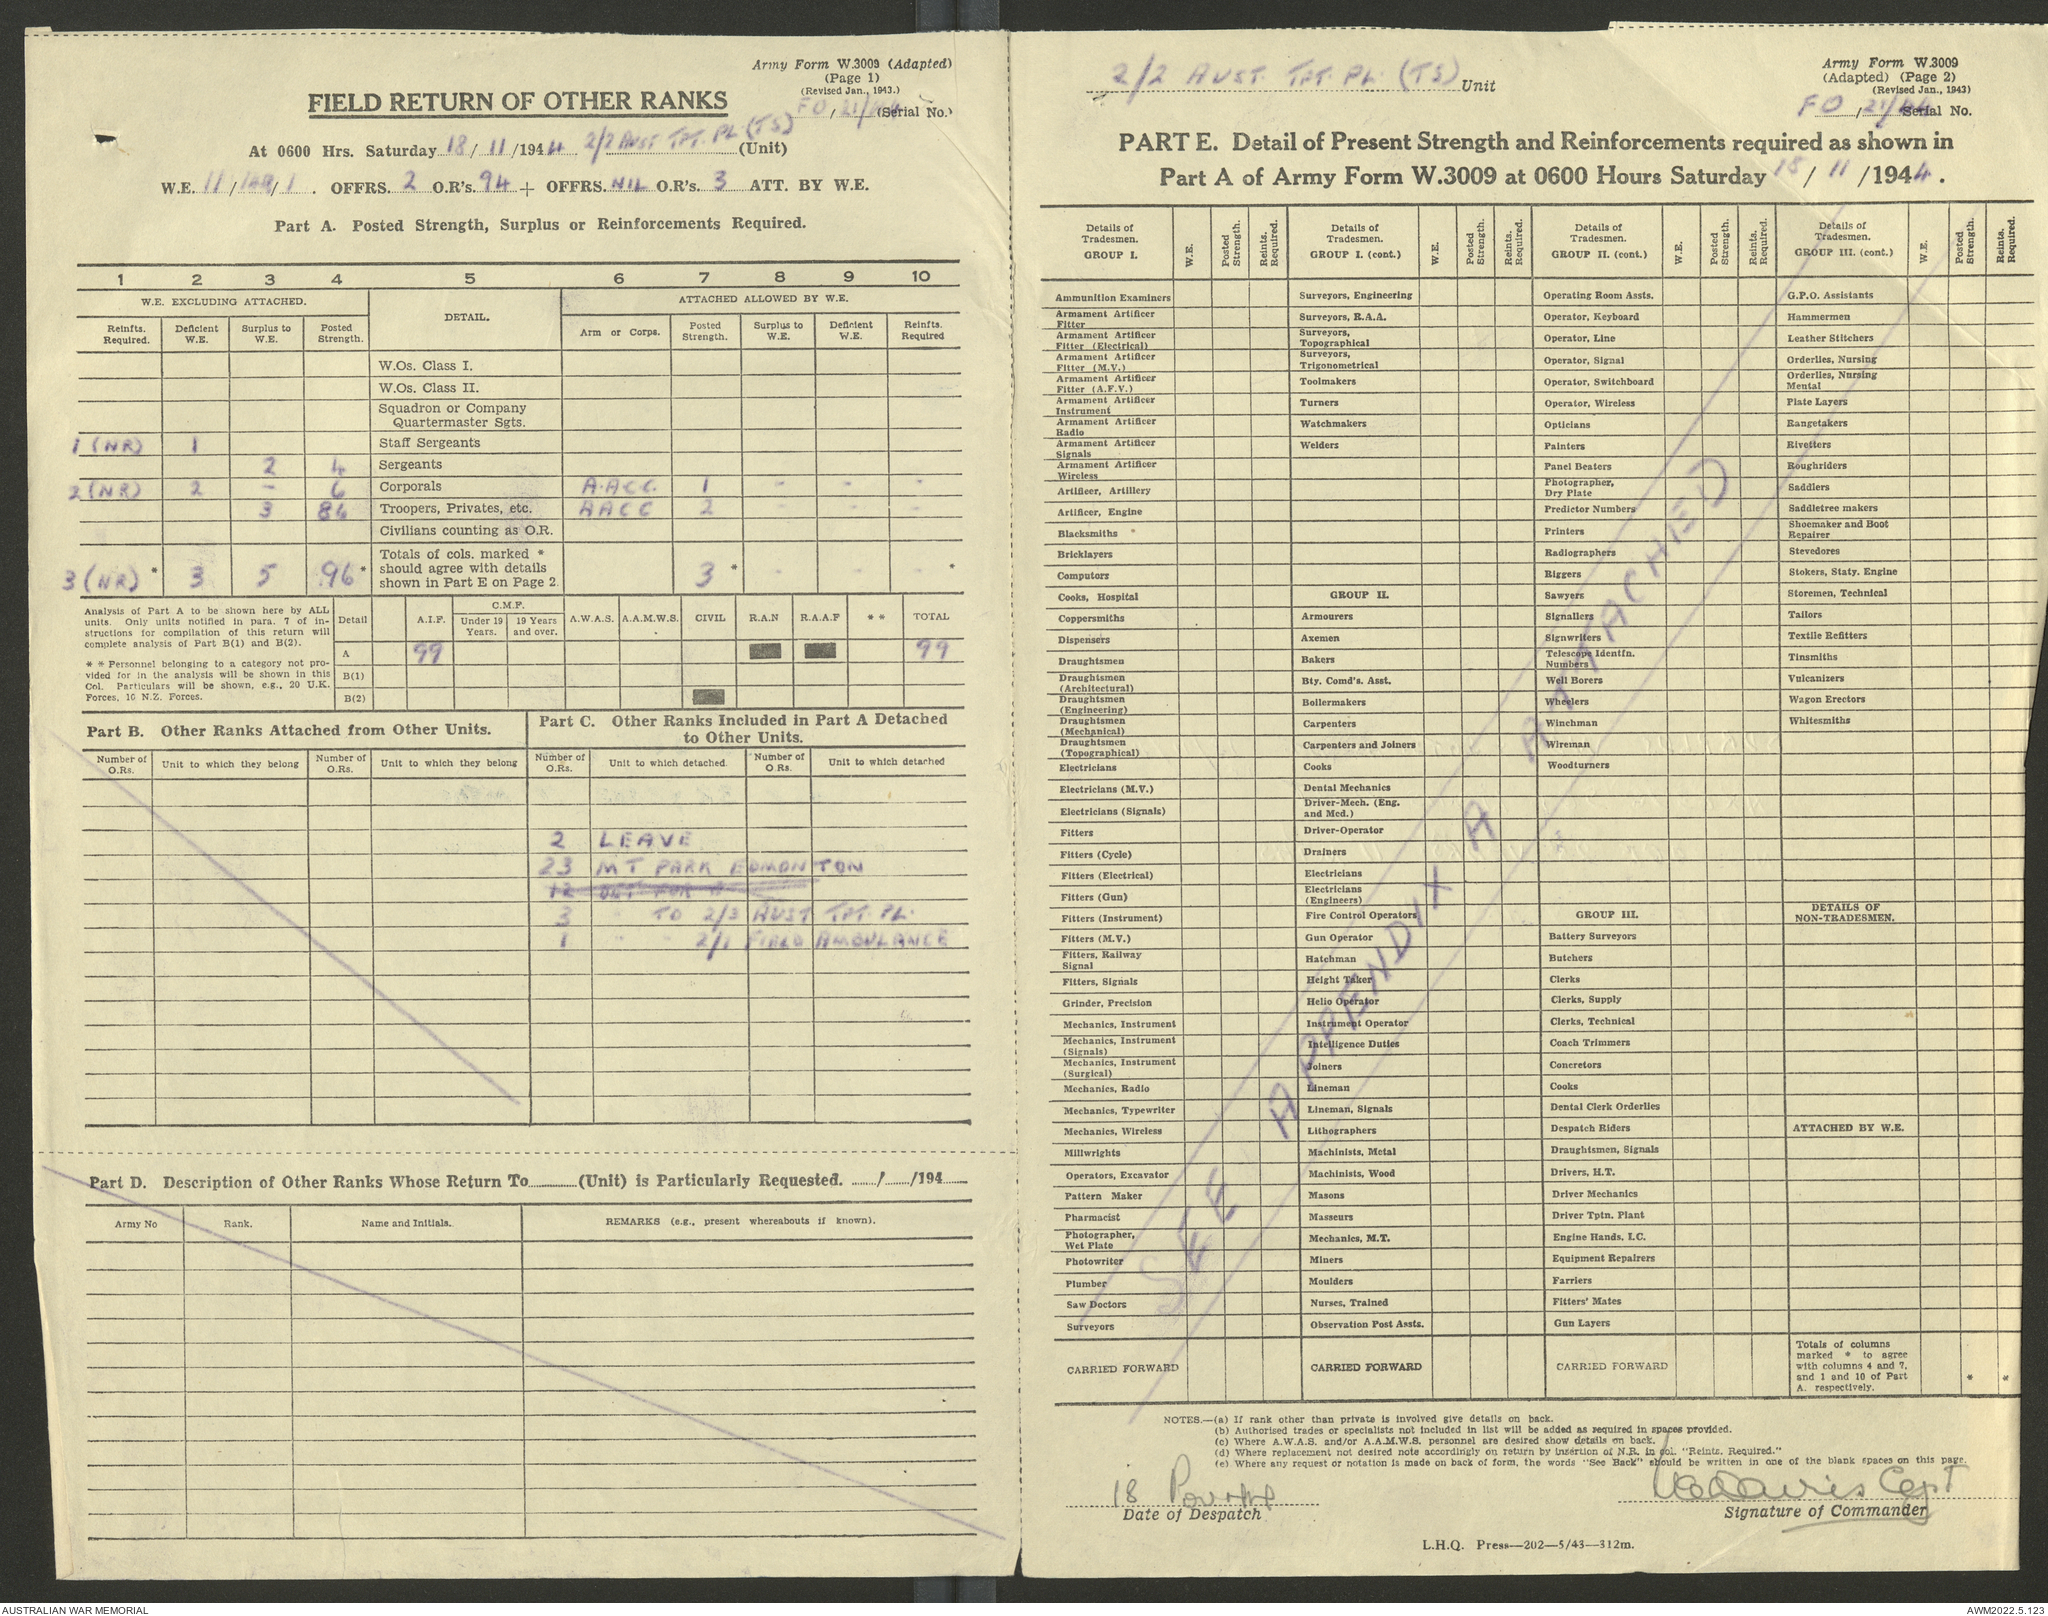 Army Form W.3009 (Adapted)
(Page 1)
(Revised Jan., 1943.)
FIELD RETURN OF OTHER RANKS
FO / 21/44 (Serial No.)
At 0600 Hrs. Saturday 18 / 11 /1944 2/2 AUST TPT. PL (TS) (Unit)
W.E. 11 / / 1 . OFFRS. 2 O.R's. 94 + OFFRS. NIL O.R's. 3 ATT. BY W.E.
Part A. Posted Strength, Surplus or Reinforcements Required.
1 2 3 4 5 6 7 8 9 10
W.E. EXCLUDING ATTACHED. DETAIL. ATTACHED ALLOWED BY W.E.
Reinfts. Required. Deficient W.E. Surplus to W.E. Posted Strength. Arm or Corps. Posted Strength. Surplus to W.E. Deficient W.E. Reinfts. Required
W.Os. Class I.
W.Os. Class II.
Squadron or Company
Quartermaster Sgts.
1 (NR) 1 Staff Sergeants
2 4 Sergeants
2 (NR) 2 - 6 Corporals A.ACC. 1 - - -
3 86 Troopers, Privates, etc. AACC 2 - - -
Civilians counting as O.R.
Totals of cols. marked *
should agree with details
3 (NR) * 3 5 96 * shown in Part E on Page 2. 3 * - - - *
Analysis of Part A to be shown here by ALL
units. Only units notified in para. 7 of in-
structions for compilation of this return will
complete analysis of Part B(1) and B(2).
* * Personnel belonging to a category not pro-
vided for in the analysis will be shown in this
Col. Particulars will be shown, e.g., 20 U.K.
Forces, 10 N.Z. Forces.
Detail A.I.F. C.M.F. Under 19 Years. 19 Years and over. A.W.A.S. A.A.M.W.S. CIVIL R.A.N R.A.A.F * * TOTAL
A 99 99
B(1)
B(2)
Part B. Other Ranks Attached from Other Units.
Part C. Other Ranks Included in Part A Detached
to Other Units.
Number of O.Rs. Unit to which they belong Number of O.Rs. Unit to which they belong Number of O.Rs. Unit to which detached. Number of O Rs. Unit to which detached
2 LEAVE
23 MT PARK EDMONTON
12 DET FOR
3 " TO 2/3 AUST TPT. PL.
1 " " 2/1 FIELD AMBULANCE
Part D. Description of Other Ranks Whose Return To (Unit) is Particularly Requested. / /194
Army No Rank. Name and Initials. REMARKS (e.g., present whereabouts if known).
2/2 AUST. TPT. PL. (TS) Unit
Army Form W.3009
(Adapted) (Page 2)
(Revised Jan., 1943)
FO / 21/44 Serial No.
PART E. Detail of Present Strength and Reinforcements required as shown in
Part A of Army Form W.3009 at 0600 Hours Saturday 18 / 11 /1944.
Details of Tradesmen. GROUP I. W.E. Posted Strength. Reints. Required.
Ammunition Examiners
Armament Artificer Fitter
Armament Artificer Fitter (Electrical)
Armament Artificer Fitter (M.V.)
Armament Artificer Fitter (A.F.V.)
Armament Artificer Instrument
Armament Artificer Radio
Armament Artificer Signals
Armament Artificer Wireless
Artificer, Artillery
Artificer, Engine
Blacksmiths
Bricklayers
Computors
Cooks, Hospital
Coppersmiths
Dispensers
Draughtsmen
Draughtsmen (Architectural)
Draughtsmen (Engineering)
Draughtsmen (Mechanical)
Draughtsmen (Topographical)
Electricians
Electricians (M.V.)
Electricians (Signals)
Fitters
Fitters (Cycle)
Fitters (Electrical)
Fitters (Gun)
Fitters (Instrument)
Fitters (M.V.)
Fitters, Railway Signal
Fitters, Signals
Grinder, Precision
Mechanics, Instrument
Mechanics, Instrument (Signals)
Mechanics, Instrument (Surgical)
Mechanics, Radio
Mechanics, Typewriter
Mechanics, Wireless
Millwrights
Operators, Excavator
Pattern Maker
Pharmacist
Photographer, Wet Plate
Photowriter
Plumber
Saw Doctors
Surveyors
CARRIED FORWARD
Details of Tradesmen. GROUP I. (cont.) W.E. Posted Strength. Reints. Required.
Surveyors, Engineering
Surveyors, R.A.A.
Surveyors, Topographical
Surveyors, Trigonometrical
Toolmakers
Turners
Watchmakers
Welders
GROUP II.
Armourers
Axemen
Bakers
Bty. Comd's. Asst.
Boilermakers
Carpenters
Carpenters and Joiners
Cooks
Dental Mechanics
Driver-Mech. (Eng. and Med.)
Driver-Operator
Drainers
Electricians
Electricians (Engineers)
Fire Control Operators
Gun Operator
Hatchman
Height Taker
Helio Operator
Instrument Operator
Intelligence Duties
Joiners
Lineman
Lineman, Signals
Lithographers
Machinists, Metal
Machinists, Wood
Masons
Masseurs
Mechanics, M.T.
Miners
Moulders
Nurses, Trained
Observation Post Assts.
CARRIED FORWARD
Details of Tradesmen. GROUP II. (cont) W.E. Posted Strength. Reints. Required.
Operating Room Assts.
Operator, Keyboard
Operator, Line
Operator, Signal
Operator, Switchboard
Operator, Wireless
Opticians
Painters
Panel Beaters
Photographer, Dry Plate
Predictor Numbers
Printers
Radiographers
Riggers
Sawyers
Signallers
Signwriters
Telescope Identfn. Numbers
Well Borers
Wheelers
Winchman
Wireman
Woodturners
GROUP III.
Battery Surveyors
Butchers
Clerks
Clerks, Supply
Clerks, Technical
Coach Trimmers
Concretors
Cooks
Dental Clerk Orderlies
Despatch Riders
Draughtsmen, Signals
Drivers, H.T.
Driver Mechanics
Driver Tptn. Plant
Engine Hands, I.C.
Equipment Repairers
Farriers
Fitters' Mates
Gun Layers
CARRIED FORWARD
Details of Tradesmen. GROUP III. (cont.) W.E. Posted Strength. Reints. Required.
G.P.O. Assistants
Hammermen
Leather Stitchers
Orderlies, Nursing
Orderlies, Nursing Mental
Plate Layers
Rangetakers
Rivetters
Roughriders
Saddlers
Saddletree makers
Shoemaker and Boot Repairer
Stevedores
Stokers, Staty. Engine
Storemen, Technical
Tailors
Textile Refitters
Tinsmiths
Vulcanizers
Wagon Erectors
Whitesmiths
DETAILS OF NON-TRADESMEN.
ATTACHED BY W.E.
Totals of columns
marked * to agree
with columns 4 and 7,
and 1 and 10 of Part
A. respectively. * *
SEE APPENDIX A ATTACHED
NOTES.—(a) If rank other than private is involved give details on back.
(b) Authorised trades or specialists not included in list will be added as required in spaces provided.
(c) Where A.W.A.S. and/or A.A.M.W.S. personnel are desired show details on back.
(d) Where replacement not desired note accordingly on return by insertion of N.R. in col. "Reints. Required."
(e) Where any request or notation is made on back of form, the words "See Back" should be written in one of the blank spaces on this page.
18
Date of Despatch
Davis Capt
Signature of Commander
L.H.Q. Press—202—5/43—312m.
AUSTRALIAN WAR MEMORIAL
AWM2022.5.123